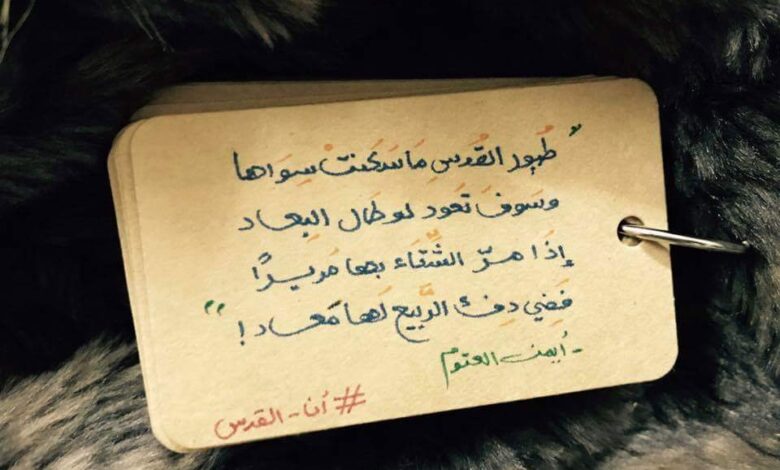 " طُيور القُدسِ مَا سَكنتْ سِوَاها
وسَوفَ تَعود لو طَال البِعاد
إذَا مرّ الشِّتَاء بها مَريرًا
فَفي دِفء الرَّبيع لَها مَعاد! "
- أيمن العتوم
#أنا-القدس